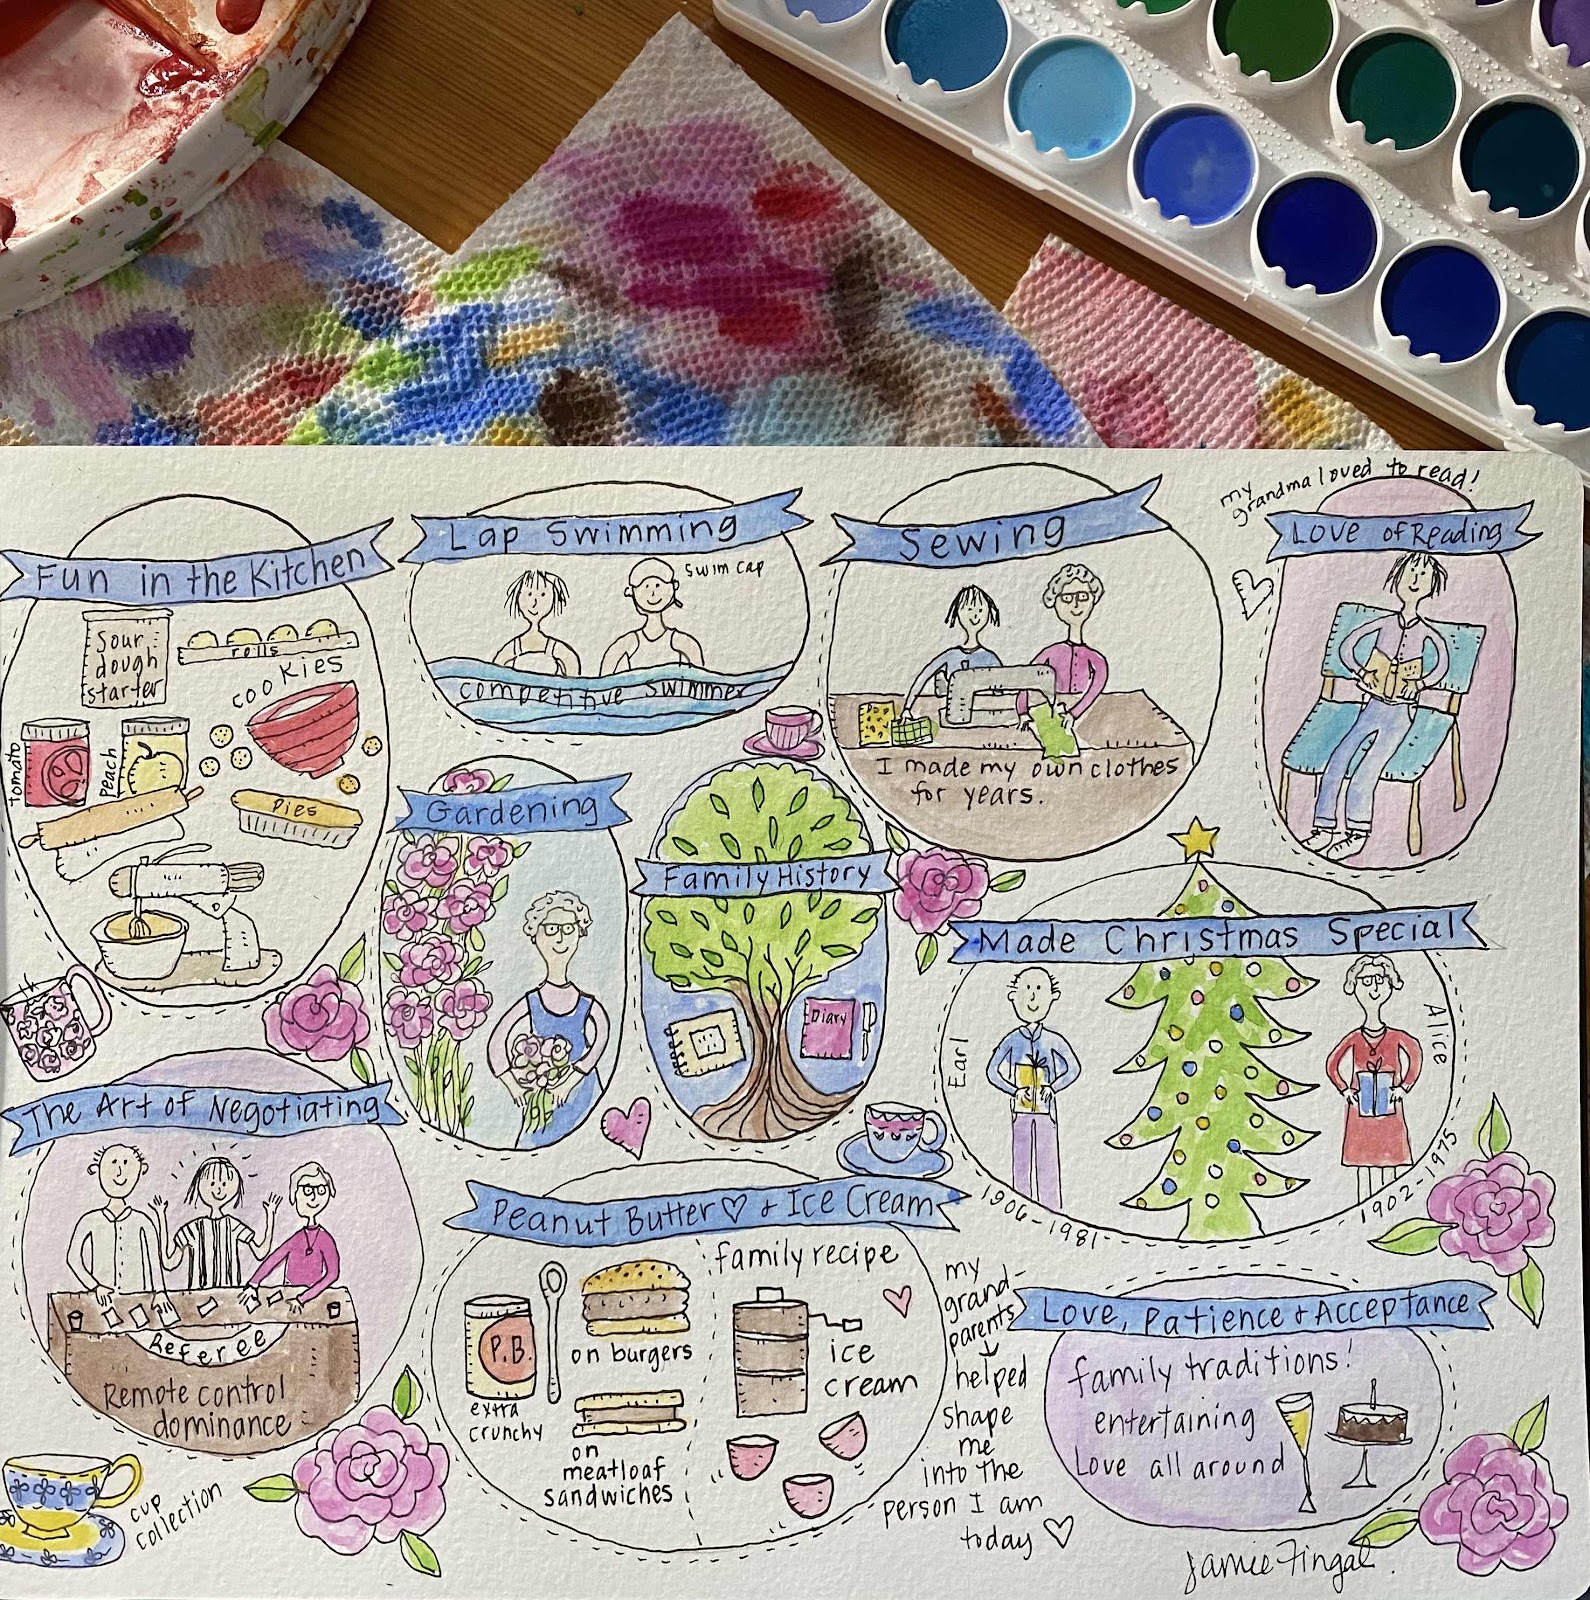 my
grandma loved to read!
Fun in the Kitchen
Sour
dough
starter
rolls
cookies
tomato
peach
Pies
Lap Swimming
swim cap
competitive swimmer
Sewing
I made my own clothes
for years.
Love of Reading
Gardening
Family History
Diary
Made Christmas Special
Earl
1906-1981
Alice
1902-1975
The Art of Negotiating
Referee
Remote control
dominance
cup
collection
Peanut Butter ♡ + Ice Cream
P.B.
extra
crunchy
on burgers
on
meatloaf
sandwiches
family recipe
ice
cream
my
grand
parents
helped
shape
me
into the
person I am
today ♡
Love, Patience + Acceptance
family traditions!
entertaining
Love all around
Jamie Fingal.